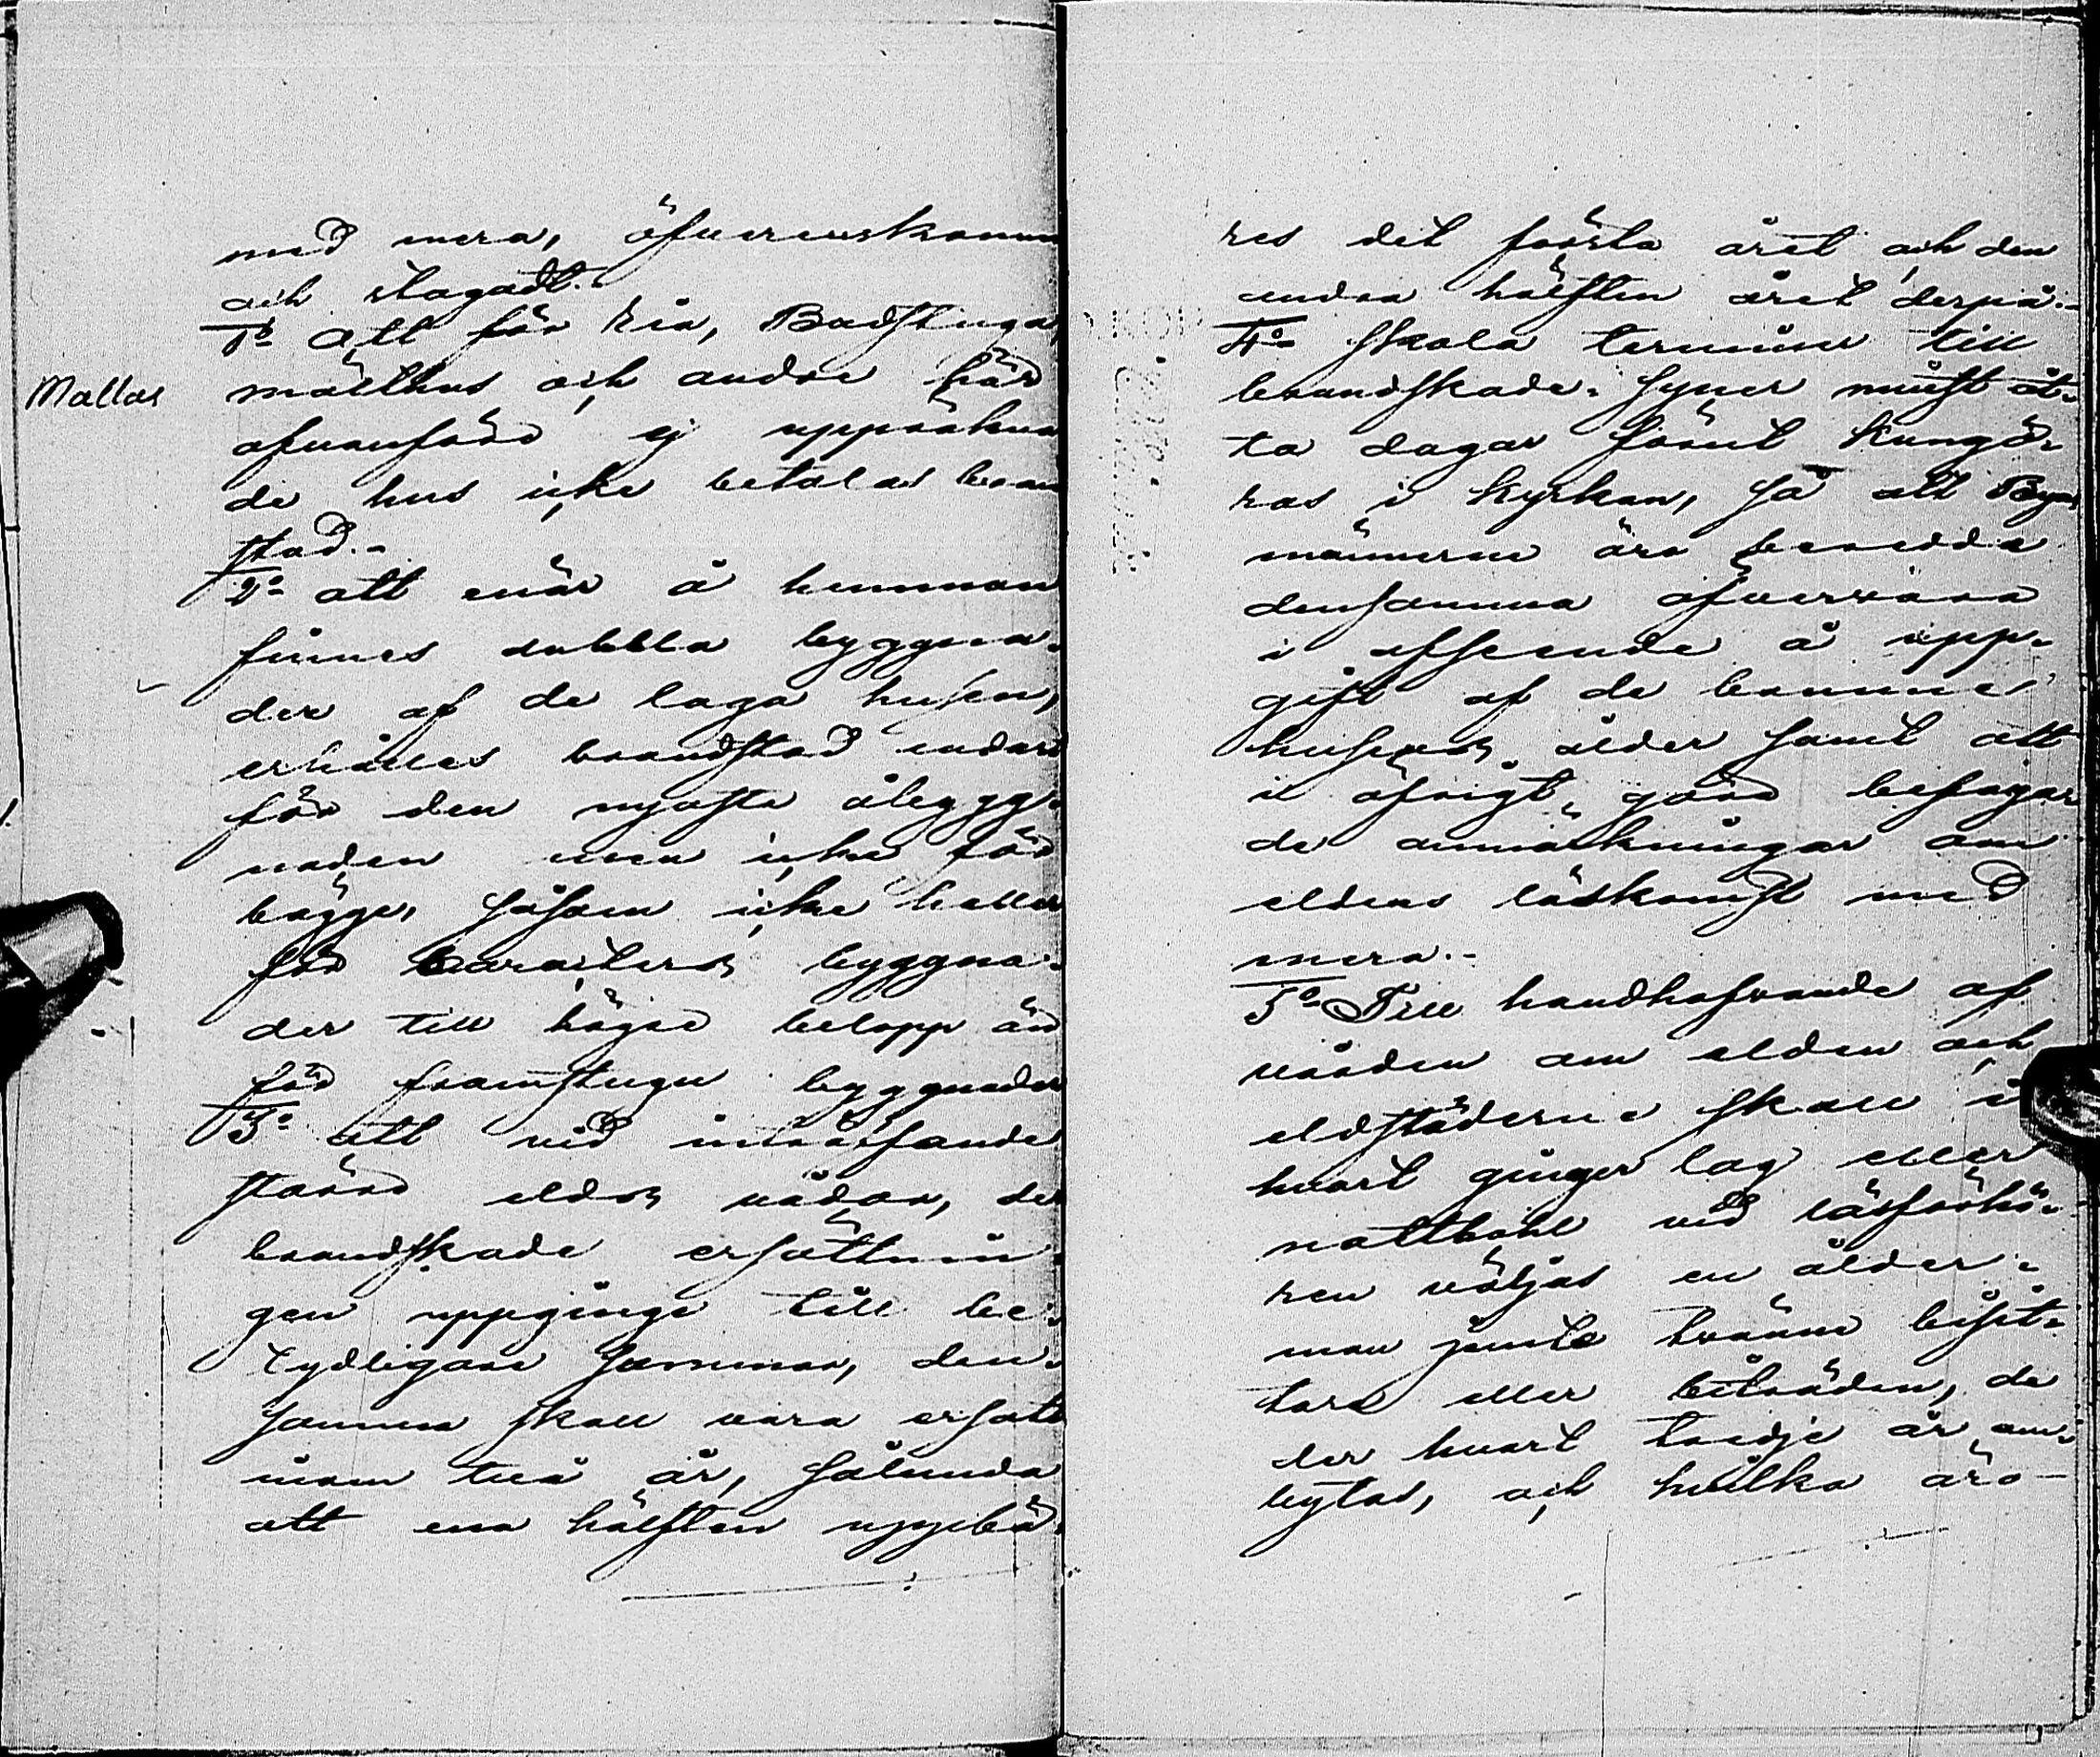 med mera, öfverenskomm
och stagadt.
1o Att för Ria, Badstuga,
Mallas
mälthus och andre här
ofvanföre ej uppräkna
de hus icke betalas bran
stod.-
2o att enär å hemman
finnes dubbla byggna-
der af de laga husen,
erhålles brandstod endast
för den nyaste åbygg-
naden men icke för
bägge, såsom icke heller
för byggna-
der till högre belopp än
för framstugu byggnader
3o att vid inträffande
större elds vådor, der
brandskade ersättnin-
gen uppginge till be-
tydligare summor, den-
samma skall vara ersatt
inom två år, sålunda
att ena hälften uppbä-
res det första året och den
andra hälften året derpå.-
4o Skola terminer till
brandskade-syner minst åt-
ta dagar förut kungö-
ras i kyrkan, så att Bya-
männerne äro beredda
densamma öfvervara
i afseende å upp-
gift af de brunne
husens ålder samt att
i öfrigt göra befogar
de anmärkningar om
eldens löskomst med
mera.-
5o Till handhafvande af
vården om elden och
eldstäderne skall i
hvart ringer lag eller
rotthåll vid läsförhö-
ren väljas en ålder-
man jemte tvänne bisit-
tare eller biträden, de
der hvart tredje år om-
bytas, och hvilka äro-